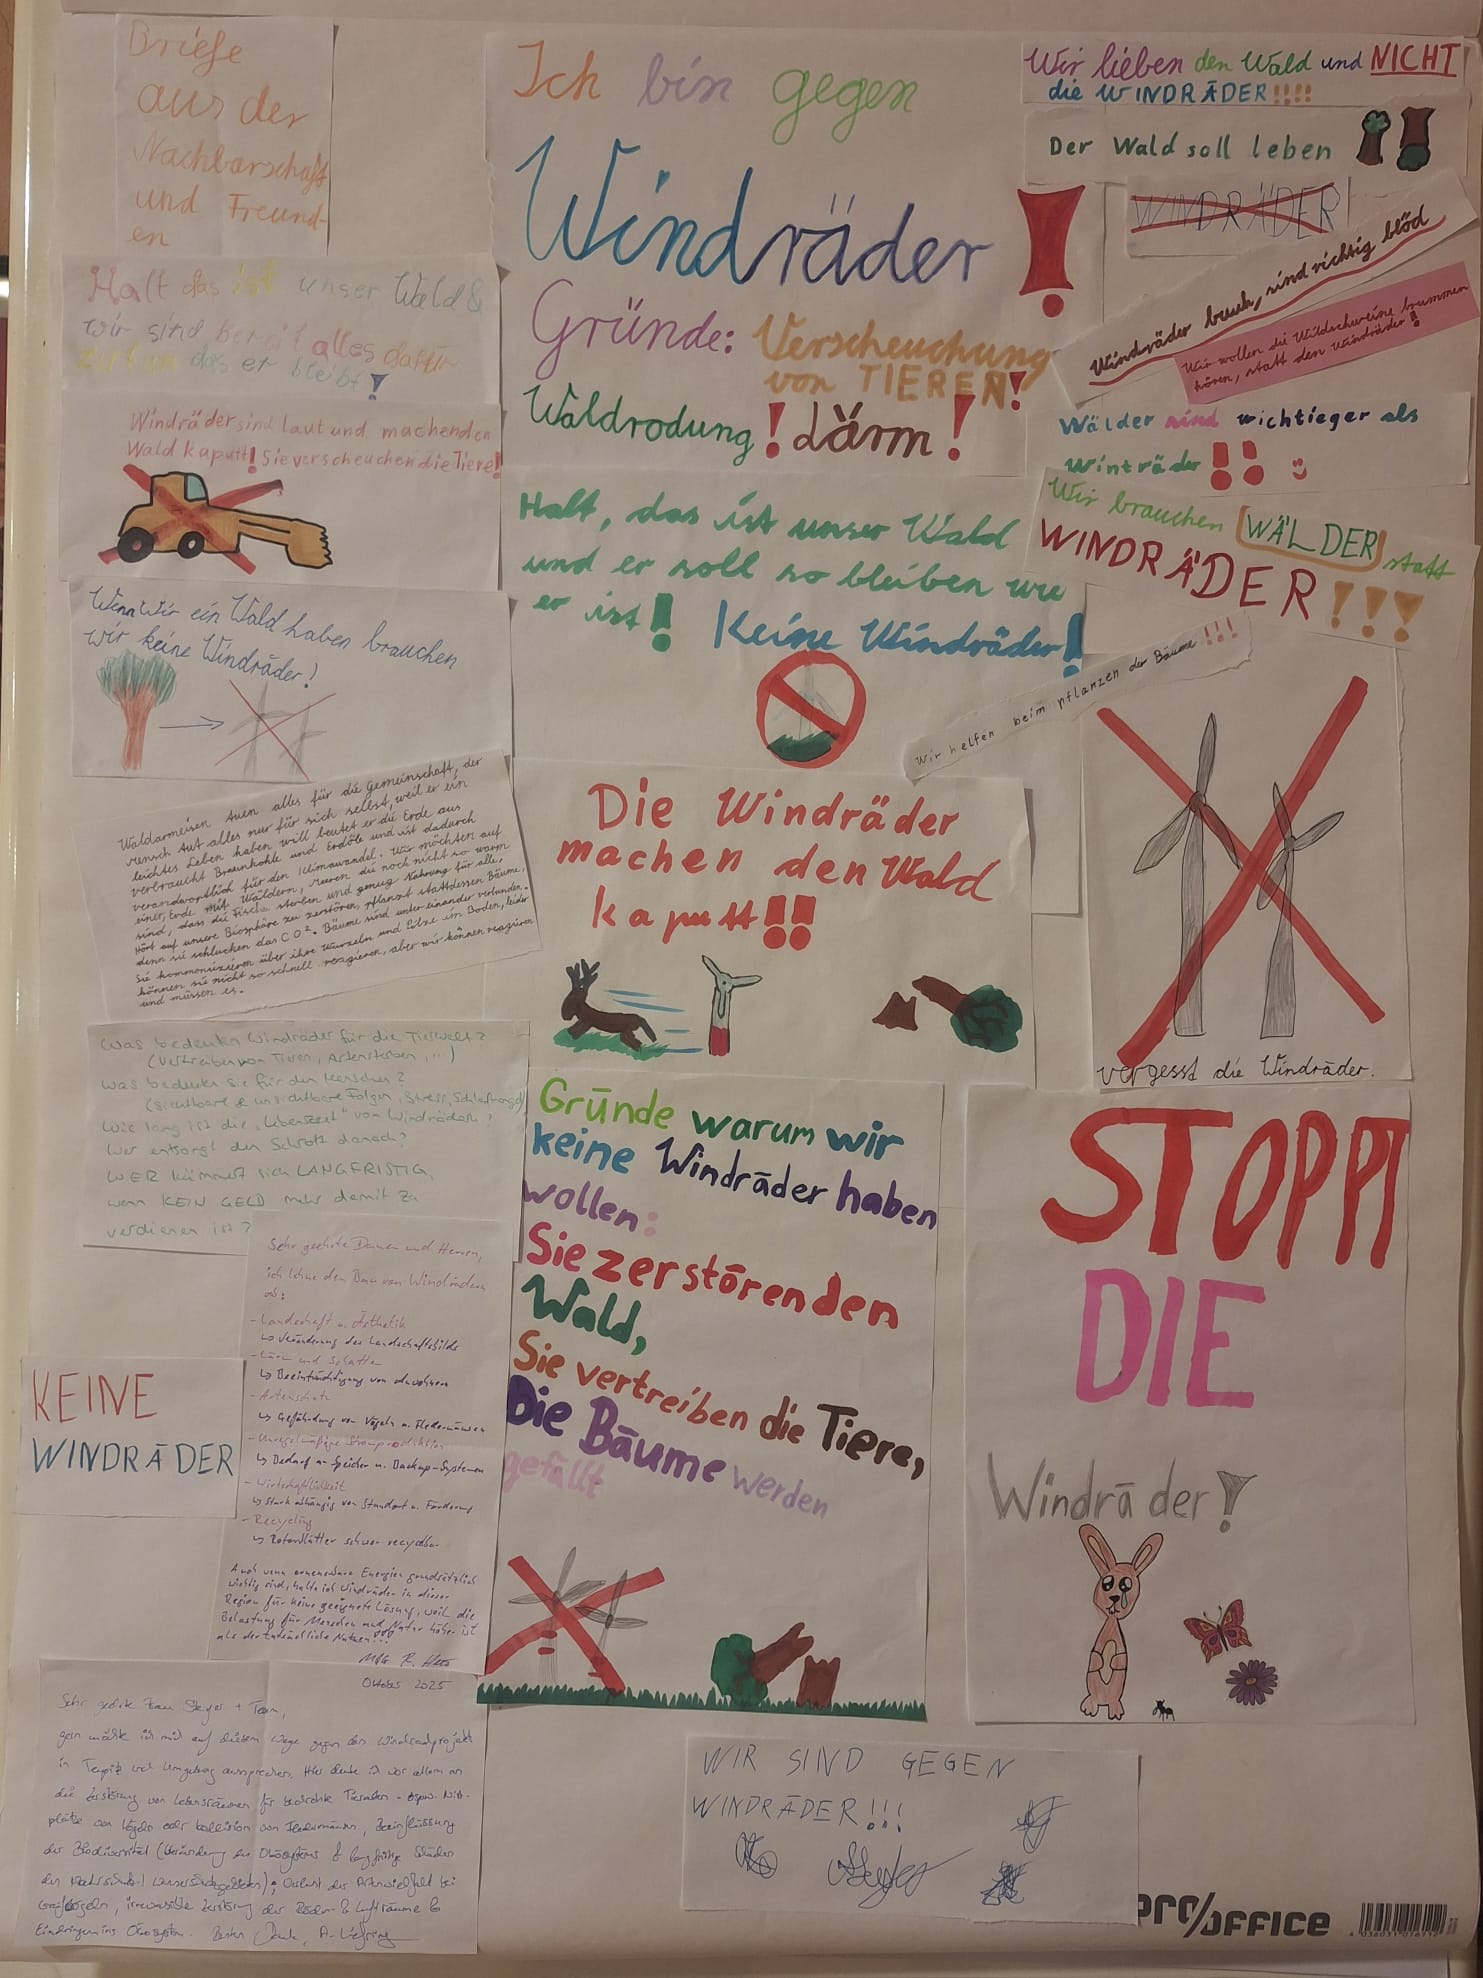 Briefe
aus der
Nachbarschaft
und Freund-
en
Halt das ist unser Wald &
wir sind bereit alles dafür
zu tun das er bleibt!
Windräder sind laut und machen den
Wald kaputt! Sie verscheuchen die Tiere!
Wenn Wir ein Wald haben brauchen
wir keine Windräder!
Waldameisen tuen alles für die Gemeinschaft, der
mensch tut alles nur für sich selbst, weil er ein
leichtes Leben haben will beutet er die Erde aus
verbraucht Braunkohle und Erdöle und ist dadurch
verandwortlich für den Klimawandel. Wir möchten auf
einer Erde mit Wäldern, Meeren die noch nicht so warm
sind, dass die Fische sterben und genug Nahrung für alle.
Hört auf unsere Biosphäre zu zerstören, pflanzt stattdessen Bäume,
denn sie schlucken das CO². Bäume sind untereinander verbunden.
Sie kommonizieren über ihre Wurzeln und Pilze im Boden, leider
können sie nicht so schnell reagieren, aber wir können reagieren
und müssen es.
Was bedeuten Windräder für die Tierwelt?
(Vertreiben von Tieren, Artensterben, ...)
Was bedeuten sie für den Menschen?
(sichtbare & unsichtbare Folgen, Stress, Schlafmangel)
Wie lang ist die "Lebenszeit" von Windrädern?
Wer entsorgt den Schrott danach?
WER kümmert sich LANGFRISTIG,
wenn KEIN GELD mehr damit zu
verdienen ist?
Sehr geehrte Damen und Herren,
ich lehne den Bau von Windrädern
ab:
- Landschaft u. Ästhetik
↳ Veränderung des Landschaftsbilds
- Lärm und Schatten
↳ Beeinträchtigung von Anwohnern
- Artenschutz
↳ Gefährdung von Vögeln u. Fledermäusen
- Unregelmäßige Stromproduktion
↳ Bedarf an Speicher u. Backup-Systemen
- Wirtschaftlichkeit
↳ stark abhängig von Standort u. Förderung
- Recycling
↳ Rotorblätter schwer recycelbar
Auch wenn erneuerbare Energien grundsätzlich
wichtig sind, halte ich Windräder in dieser
Region für keine geeignete Lösung, weil die
Belastung für Menschen und Natur höher ist
als der tatsächliche Nutzen!!!
MfG R.
Oktober 2025
KEINE
WINDRÄDER
Sehr geehrte Frau + Team,
gern möchte ich mich auf diesem Wege gegen das Windradprojekt
in Teupitz und Umgebung aussprechen. Hier denke ich vor allem an
die Zerstörung von Lebensräumen für bedrohte Tierarten - bspw. Nist-
plätze von Vögeln oder Kollision von Fledermäusen, Beeinflussung
der Biodiversität (Veränderung des Ökosystems & langfristige Schäden
der); Verlust der Artenvielfalt bei
Greifvögeln, irreversible Zerstörung der Böden & Lufträume &
Eindringen ins Ökosystem. Besten Dank, A.
Ich bin gegen
Windräder!
Gründe: Verscheuchung
von TIEREN!
Waldrodung! Lärm!
Halt, das ist unser Wald
und er soll so bleiben wie
er ist! Keine Windräder!
Die Windräder
machen den Wald
kaputt!!
Gründe warum wir
keine Windräder haben
wollen:
Sie zerstören den
Wald,
Sie vertreiben die Tiere,
Die Bäume werden
gefällt
WIR SIND GEGEN
WINDRÄDER!!!
Wir lieben den Wald und NICHT
die WINDRÄDER!!!!
Der Wald soll leben
WINDRÄDER!
Windräder buuh, sind richtig blöd
Wir wollen die Wildschweine brummen
hören, statt den Windräder!
Wälder sind wichtieger als
Winträder!!
Wir brauchen WÄLDER statt
WINDRÄDER!!!
Wir helfen beim pflanzen der Bäume!!!
vergesst die Windräder.
STOPPT
DIE
Windräder!
pro/OFFICE